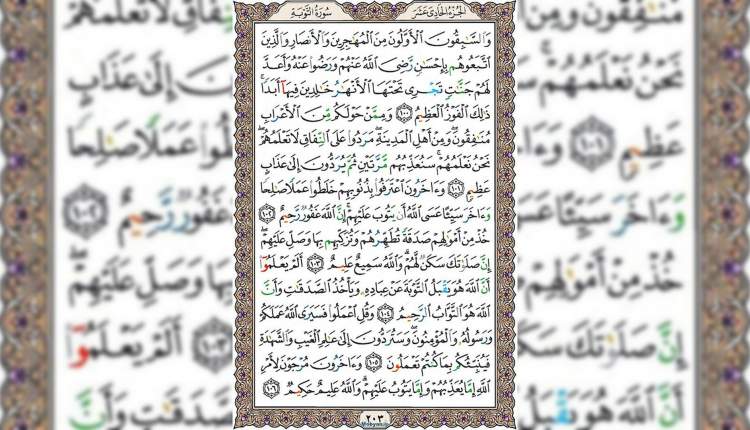 الجزء الحادي عشر
سورة التوبة
وَالسَّٰبِقُونَ الْأَوَّلُونَ مِنَ الْمُهَٰجِرِينَ وَالْأَنصَارِ وَالَّذِينَ
اتَّبَعُوهُم بِإِحْسَٰنٍ رَّضِيَ اللَّهُ عَنْهُمْ وَرَضُوا عَنْهُ وَأَعَدَّ
لَهُمْ جَنَّٰتٍ تَجْرِي تَحْتَهَا الْأَنْهَٰرُ خَٰلِدِينَ فِيهَا أَبَدًا ۚ
ذَٰلِكَ الْفَوْزُ الْعَظِيمُ ١٠٠ وَمِمَّنْ حَوْلَكُم مِّنَ الْأَعْرَابِ
مُنَٰفِقُونَ ۖ وَمِنْ أَهْلِ الْمَدِينَةِ ۖ مَرَدُوا عَلَى النِّفَاقِ لَا تَعْلَمُهُمْ ۖ
نَحْنُ نَعْلَمُهُمْ ۚ سَنُعَذِّبُهُم مَّرَّتَيْنِ ثُمَّ يُرَدُّونَ إِلَىٰ عَذَابٍ
عَظِيمٍ ١٠١ وَءَاخَرُونَ اعْتَرَفُوا بِذُنُوبِهِمْ خَلَطُوا عَمَلًا صَٰلِحًا
وَءَاخَرَ سَيِّئًا عَسَى اللَّهُ أَن يَتُوبَ عَلَيْهِمْ ۚ إِنَّ اللَّهَ غَفُورٌ رَّحِيمٌ ١٠٢
خُذْ مِنْ أَمْوَٰلِهِمْ صَدَقَةً تُطَهِّرُهُمْ وَتُزَكِّيهِم بِهَا وَصَلِّ عَلَيْهِمْ ۖ
إِنَّ صَلَوٰتَكَ سَكَنٌ لَّهُمْ ۗ وَاللَّهُ سَمِيعٌ عَلِيمٌ ١٠٣ أَلَمْ يَعْلَمُوا
أَنَّ اللَّهَ هُوَ يَقْبَلُ التَّوْبَةَ عَنْ عِبَادِهِ وَيَأْخُذُ الصَّدَقَٰتِ وَأَنَّ
اللَّهَ هُوَ التَّوَّابُ الرَّحِيمُ ١٠٤ وَقُلِ اعْمَلُوا فَسَيَرَى اللَّهُ عَمَلَكُمْ
وَرَسُولُهُ وَالْمُؤْمِنُونَ ۖ وَسَتُرَدُّونَ إِلَىٰ عَٰلِمِ الْغَيْبِ وَالشَّهَٰدَةِ
فَيُنَبِّئُكُم بِمَا كُنتُمْ تَعْمَلُونَ ١٠٥ وَءَاخَرُونَ مُرْجَوْنَ لِأَمْرِ
اللَّهِ إِمَّا يُعَذِّبُهُمْ وَإِمَّا يَتُوبُ عَلَيْهِمْ ۗ وَاللَّهُ عَلِيمٌ حَكِيمٌ ١٠٦
٢٠٣